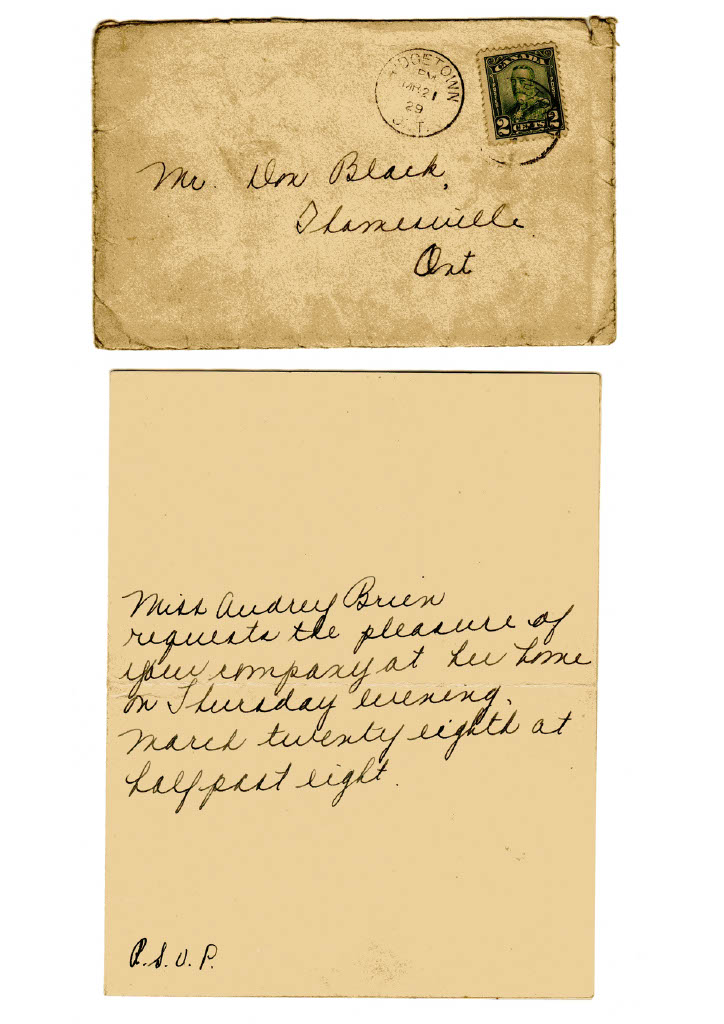 RIDGETOWN
PM
MR 21
29
ONT.
CANADA
2 CENTS 2
Mr. Don Black,
Thamesville
Ont
Miss Audrey Brien
requests the pleasure of
your company at her home
on Thursday evening,
March twenty eighth at
half past eight.
R.S.V.P.